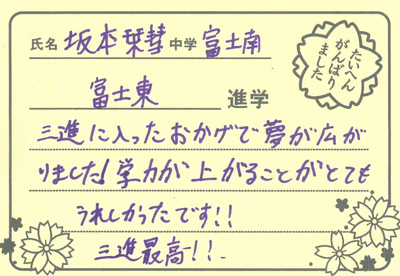 氏名 坂本栞彗 中学 富士南
たいへん
がんばり
ました
富士東 進学
三進に入ったおかげで夢が広が
りました!学力が上がることがとても
うれしかったです!!
三進最高!!